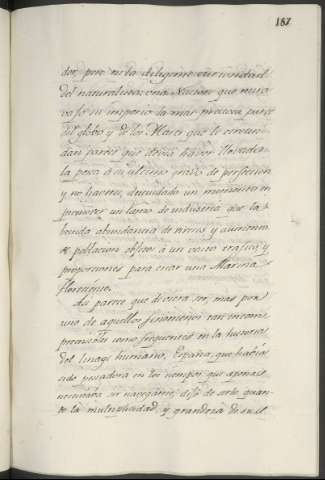 187
dor, pero ni la diligente curiosidad
del naturalista: una Nacion que tenia
vajo su imperio la mas preciosa parte
del globo y de los Mares que le circun-
dan parece que devia haver llevado
la pesca á su ultimo grado de perfeccion
y no haver descuidado un momento en
promover un ramo de industria que la
abundancia de
poblacion
proporciones para criar una Marina
floreciente.
Asi parece que deviera ser, mas por
uno de aquellos fenomenos tan incom-
prensibles como frequentes en la historia
del linage humano, España, que havia
sido pescadora en los tiempos que apenas
necesitava ser navegante, dejó de serlo quan-
do la multiplicidad y grandeza de sus